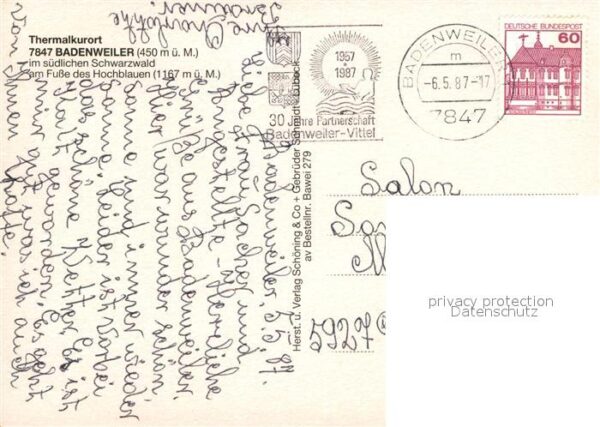 Thermalkurort
7847 BADENWEILER (450 m ü. M.)
im südlichen Schwarzwald
am Fuße des Hochblauen (1167 m ü. M.)
1957
1987
30 Jahre Partnerschaft
Badenweiler-Vittel
BADENWEILER
m
-6.5.87-17
7847
DEUTSCHE BUNDESPOST
60
Herst. u. Verlag Schöning & Co + Gebrüder Schmidt · Lübeck
av Bestellnr. Bawei 279
Badenweiler, 5.5.87.
Liebe Frau und
Angestellte - herzliche
Grüße aus Badenweiler
Hier war wunderschön
Sonne und immer wieder
Sonne, leider ist vorbei
das schöne Wetter. Es ist
kalt geworden. Es geht
mir gut, was ich auch
von Ihnen hoffe.
Ihre Charlotte
Salon
5927
privacy protection
Datenschutz